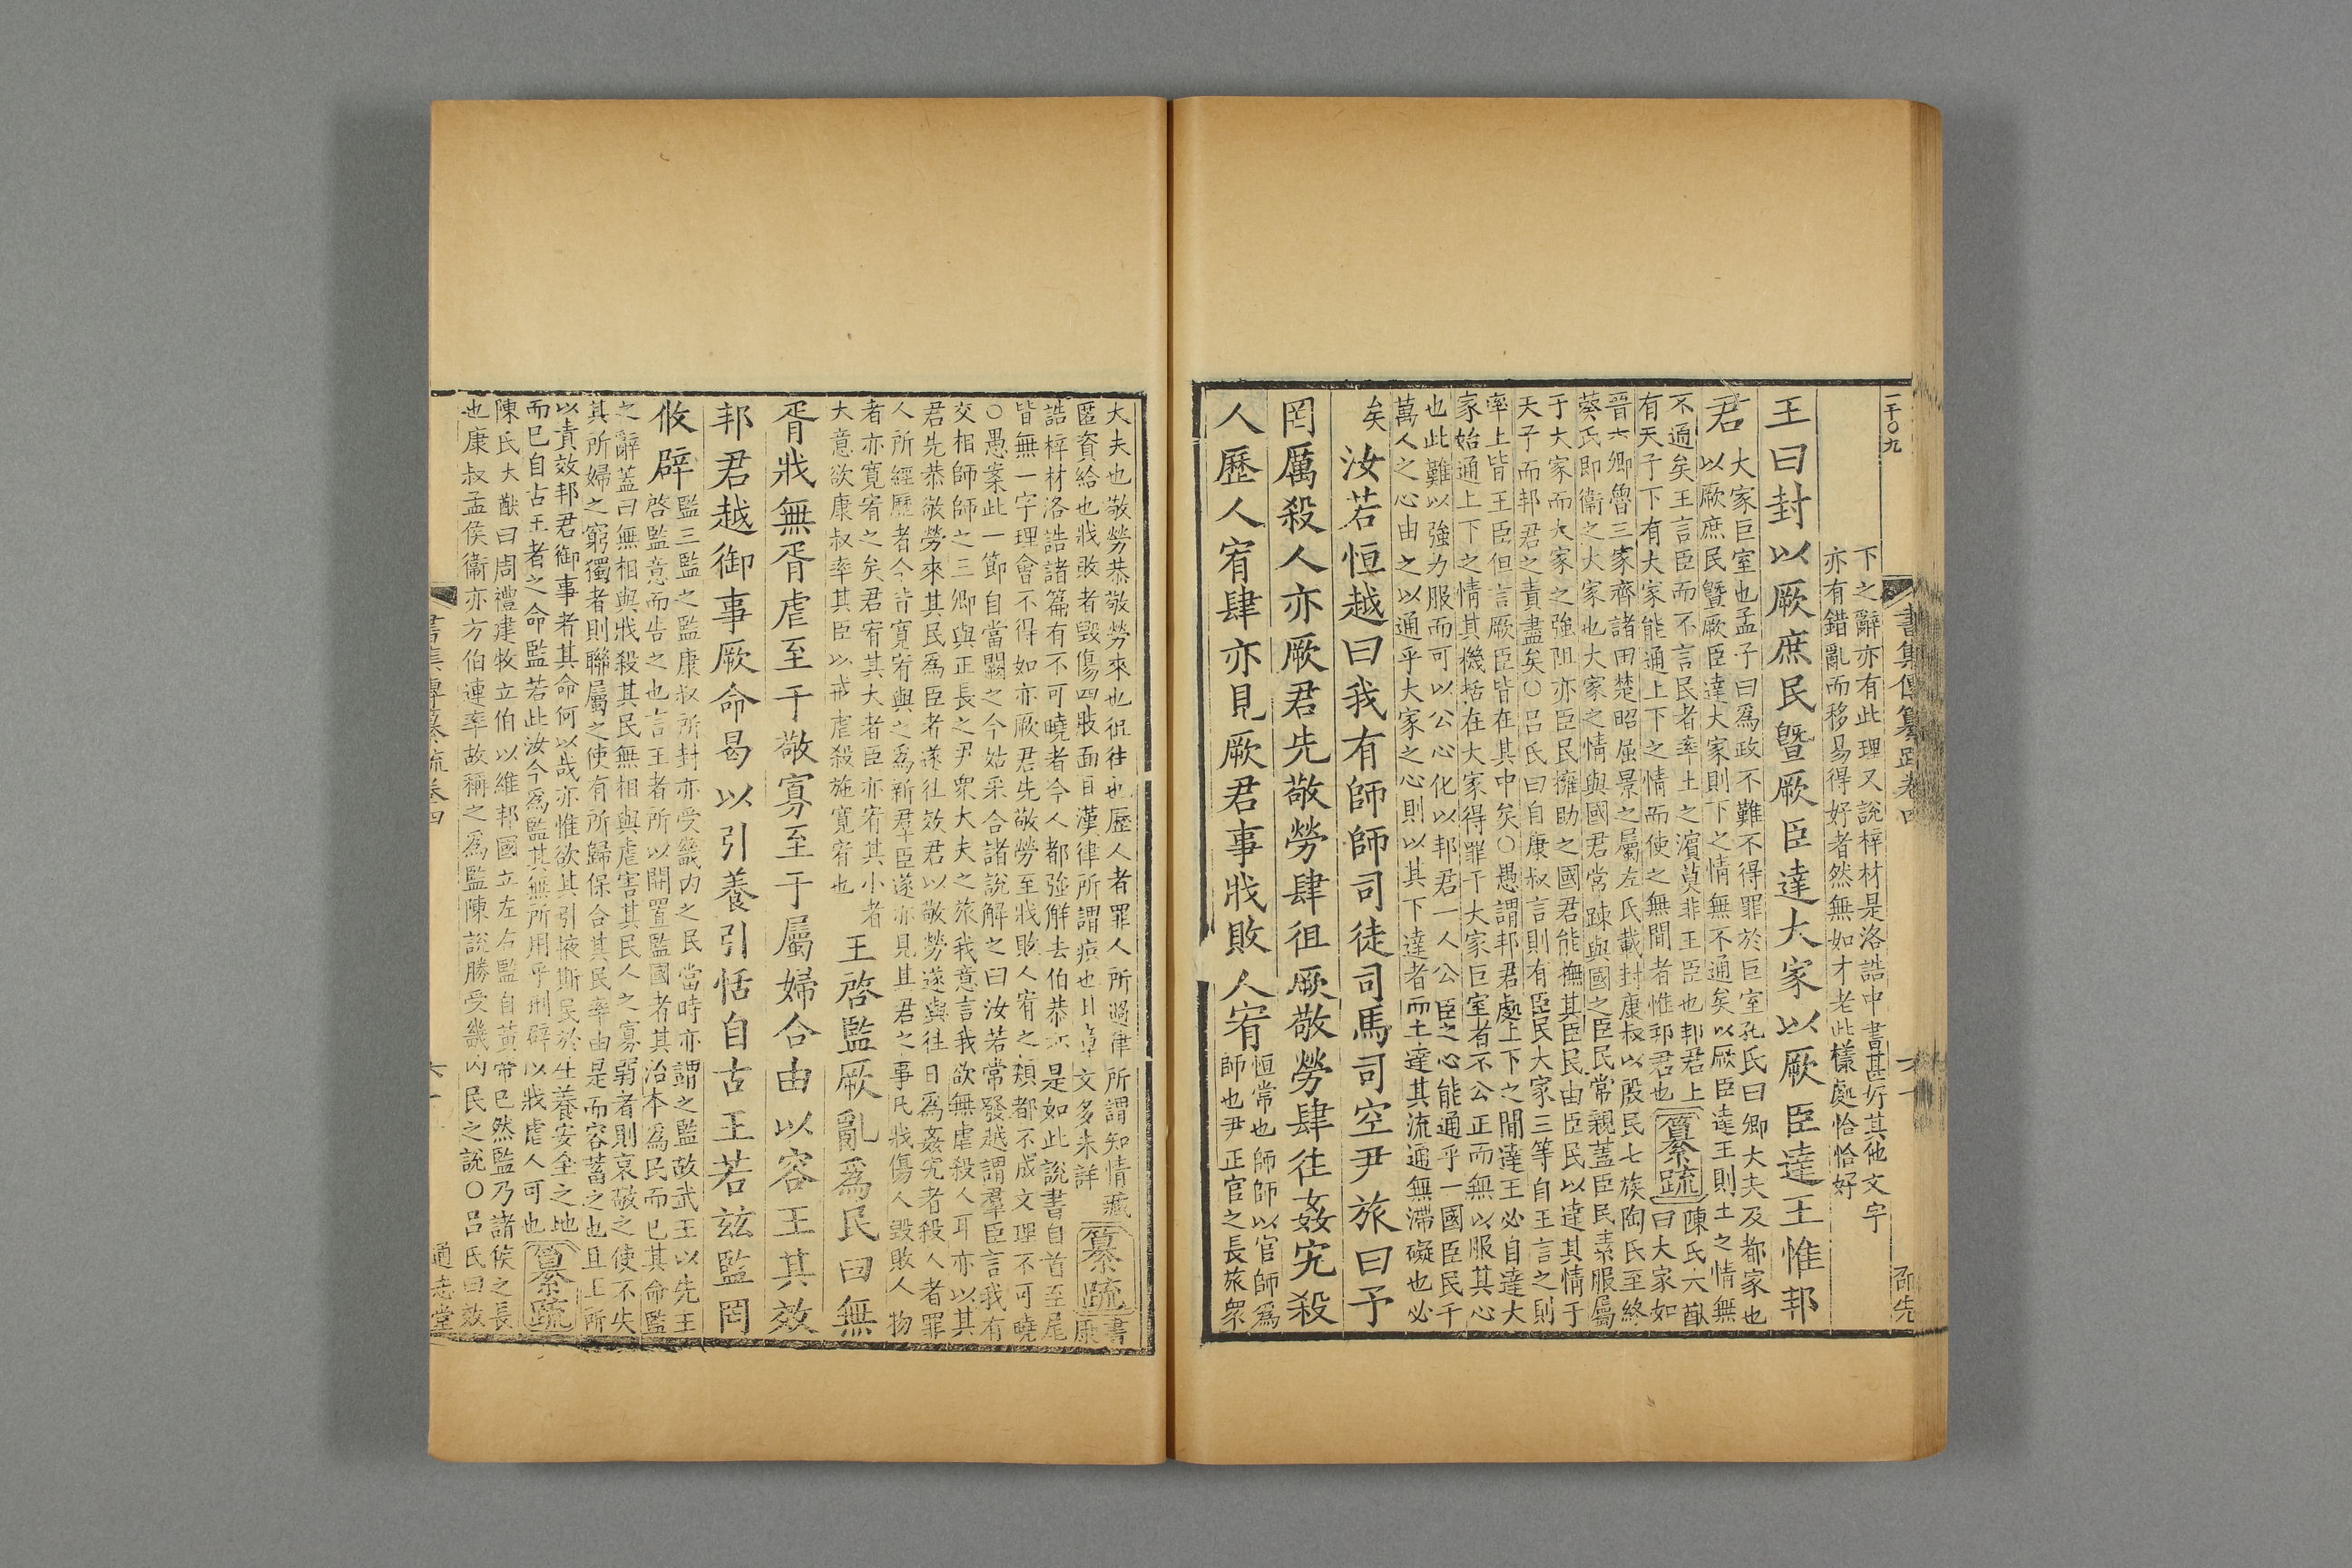 一千〇九
書集傳纂疏卷四
六十一
邵先
下之辭亦有此理又說梓材是洛誥中書甚好其他文字
亦有錯亂而移易得好者然無如才老此樣處恰恰好
王曰封以厥庶民暨厥臣達大家以厥臣達王惟邦
君
大家巨室也孟子曰為政不難不得罪於巨室孔氏曰卿大夫及都家也
以厥庶民暨厥臣達大家則下之情無不通矣以厥臣達王則上之情無
不通矣王言臣而不言民者率土之濵莫非王臣也邦君上
有天子下有大家能通上下之情而使之無間者惟邦君也
纂疏
陳氏大猷
曰大家如
晉六卿魯三家齊諸田楚昭屈景之屬左氏載封康叔以殷民七族陶氏至終
葵氏即衞之大家也大家之情與國君常踈與國之臣民常親蓋臣民素服屬
于大家而大家之強阻亦臣民擁助之國君能撫其臣民由臣民以達其情于
天子而邦君之責盡矣〇呂氏曰自康叔言則有臣民大家三等自王言之則
率土皆王臣但言厥臣皆在其中矣〇愚謂邦君處上下之間達王必自達大
家始通上下之情其機括在大家得罪于大家巨室者不公正而無以服其心
也此難以強力服而可以公心化以邦君一人公臣之心能通乎一國臣民千
萬人之心由之以通乎大家之心則以其下達者而上達其流通無滯礙也必
矣
汝若恒越曰我有師師司徒司馬司空尹旅曰予
罔厲殺人亦厥君先敬勞肆徂厥敬勞肆往姦宄殺
人歷人宥肆亦見厥君事戕敗人宥
恒常也師師以官師為
師也尹正官之長旅眾
大夫也敬勞恭敬勞來也徂往也歷人者罪人所過律所謂知情藏
匿資給也戕敗者毀傷四肢面目漢律所謂疻也此章文多未詳
纂疏
書康
誥梓材洛誥諸篇有不可曉者今人都強解去伯恭亦是如此說書自首至尾
皆無一字理會不得如亦厥君先敬勞至戕敗人宥之類都不成文理不可曉
〇愚案此一節自當闕之今姑采合諸說解之曰汝若常發越謂羣臣言我有
交相師師之三卿與正長之尹眾大夫之旅我意言我欲無虐殺人耳亦以其
君先恭敬勞來其民為臣者遂往效君以敬勞遂與往日為姦宄者殺人者罪
人所經歷者今皆寬宥與之為新羣臣遂亦見其君之事凡戕傷人毀敗人物
者亦寬宥之矣君宥其大者臣亦宥其小者
大意欲康叔率其臣以戒虐殺施寬宥也
王啓監厥亂為民曰無
胥戕無胥虐至于敬寡至于屬婦合由以容王其效
邦君越御事厥命曷以引養引恬自古王若茲監罔
攸辟
監三監之監康叔所封亦受畿內之民當時亦謂之監故武王以先王
啓監意而告之也言王者所以開置監國者其治本為民而已其命監
之辭蓋曰無相與戕殺其民無相與虐害其民人之寡弱者則哀敬之使不失
其所婦之窮獨者則聯屬之使有所歸保合其民率由是而容蓄之也且上所
以責效邦君御事者其命何以哉亦惟欲其引掖斯民於生養安全之地
而已自古王者之命監若此汝今為監其無所用乎刑辟以戕虐人可也
纂疏
陳氏大猷曰周禮建牧立伯以維邦國立左右監自黃帝已然監乃諸侯之長
也康叔孟侯衞亦方伯連率故稱之為監陳說勝受畿內民之說〇呂氏曰效
書集傳纂疏卷四
六十一
通志堂